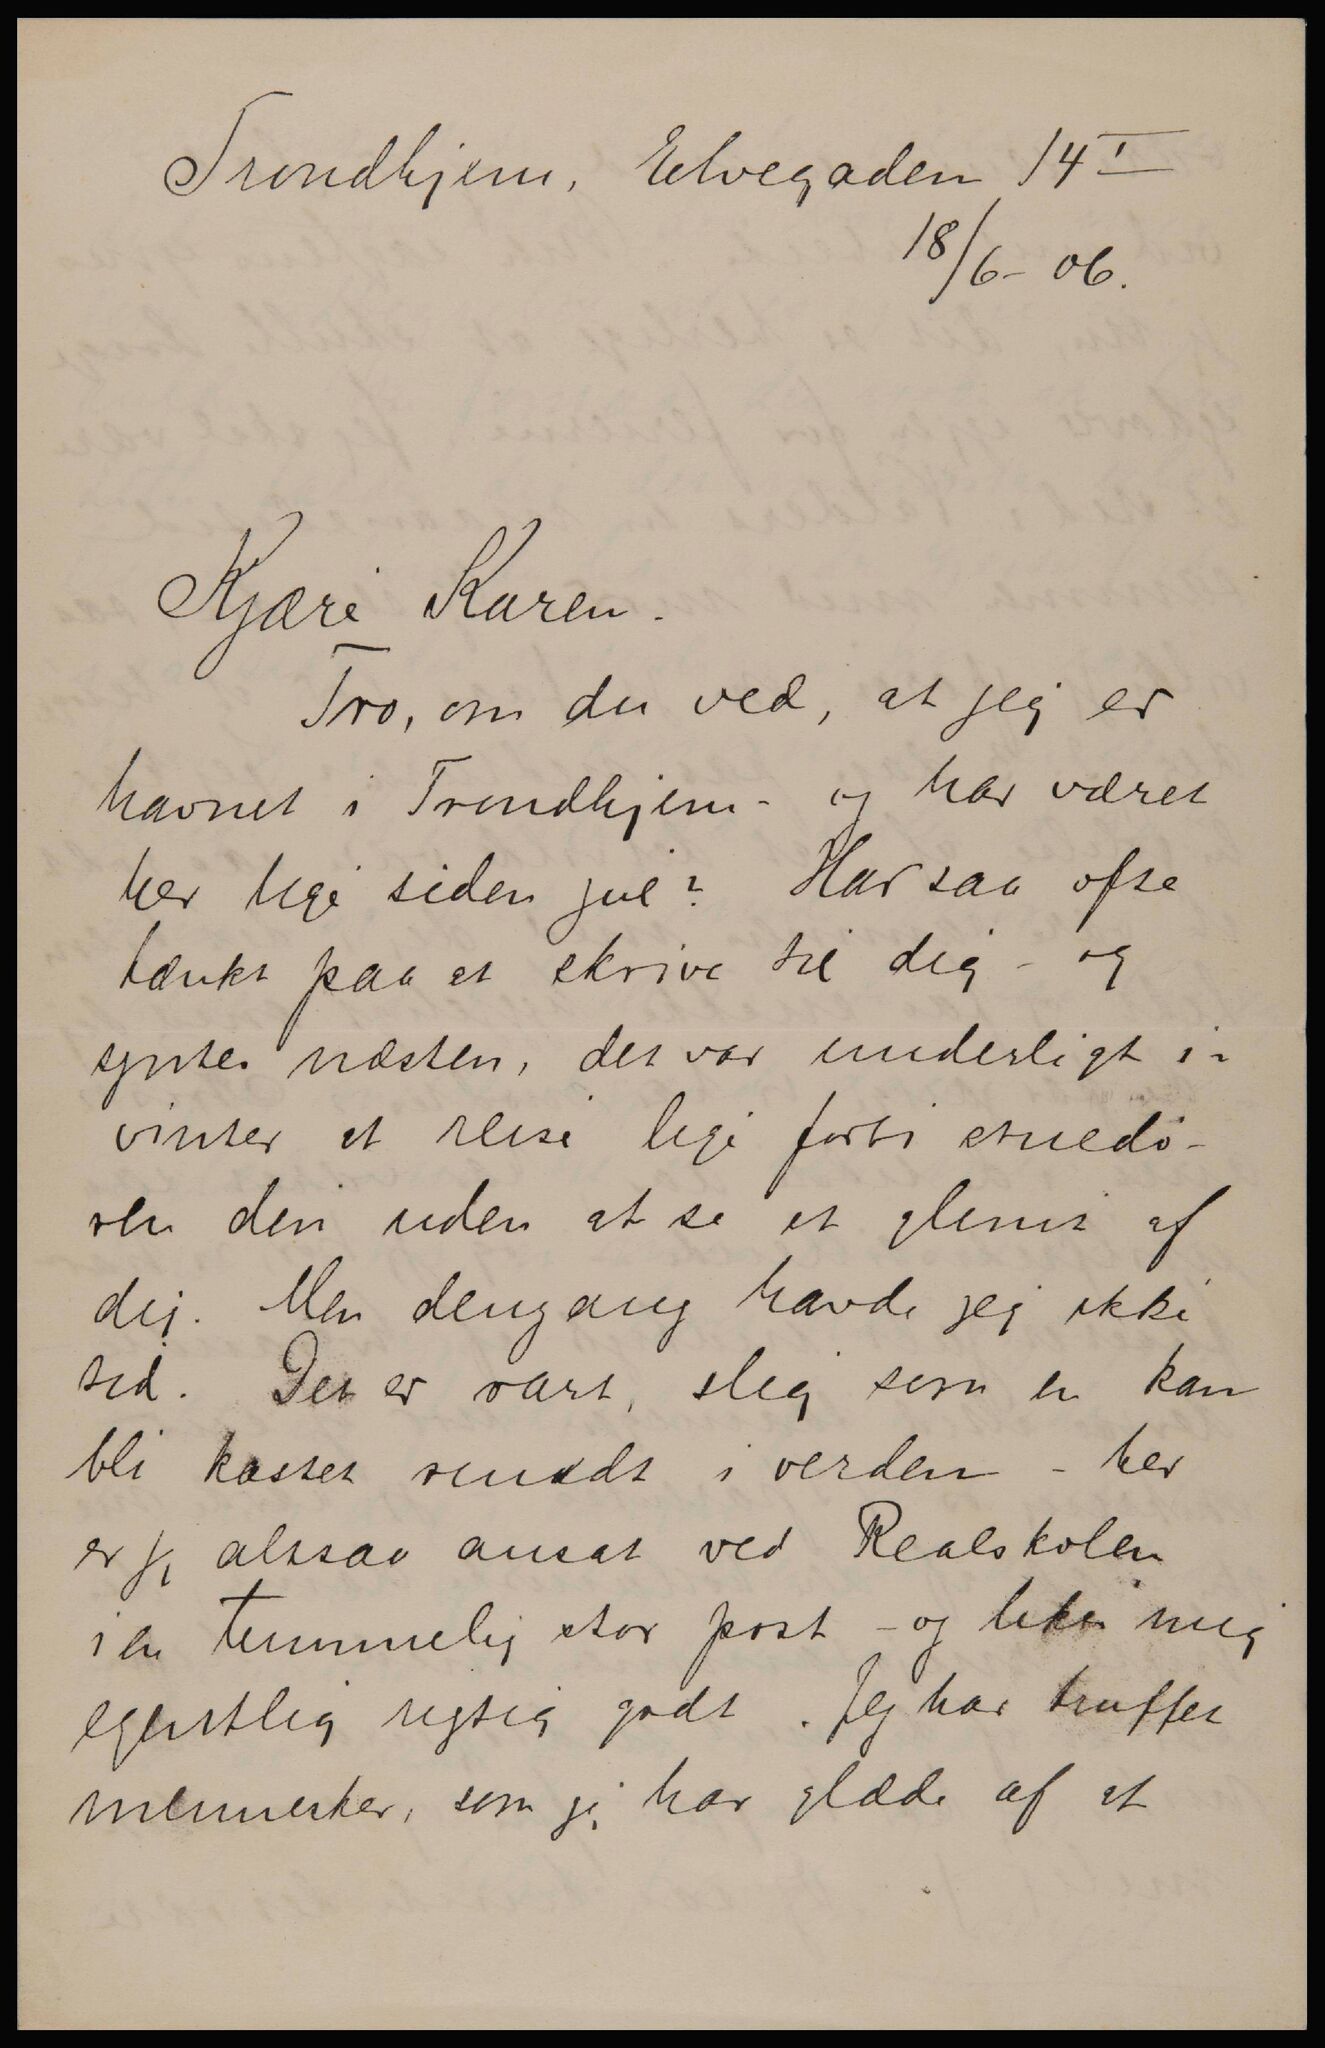 Trondhjem, Elvegaden 14 I
18/6 - 06.
Kjære Karen.
Tro, om du ved, at jeg er
havnet i Trondhjem - og har været
her lige siden jul? Har saa ofte
tænkt paa at skrive til dig - og
syntes næsten, det var underligt i
vinter at reise lige forbi stuedø-
ren din uden at se et glimt af
dig. Men dengang havde jeg ikke
tid. Det er rart, slig som en kan
bli kastet rundt i verden - her
er jeg altsaa ansat ved Realskolen
i en temmelig stor post - og liker mig
egentlig rigtig godt. Jeg har truffet
mennesker, som jeg har glæde af at